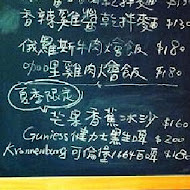 香辣雞醬乾拌麵 $130
俄羅斯牛肉燴飯 $180
咖哩雞肉燴飯 $180
夏季限定
芒果香蕉冰沙 $160
Guniess 健力士黑啤酒 $200
Kronenbourg 可倫堡1664白啤 $168